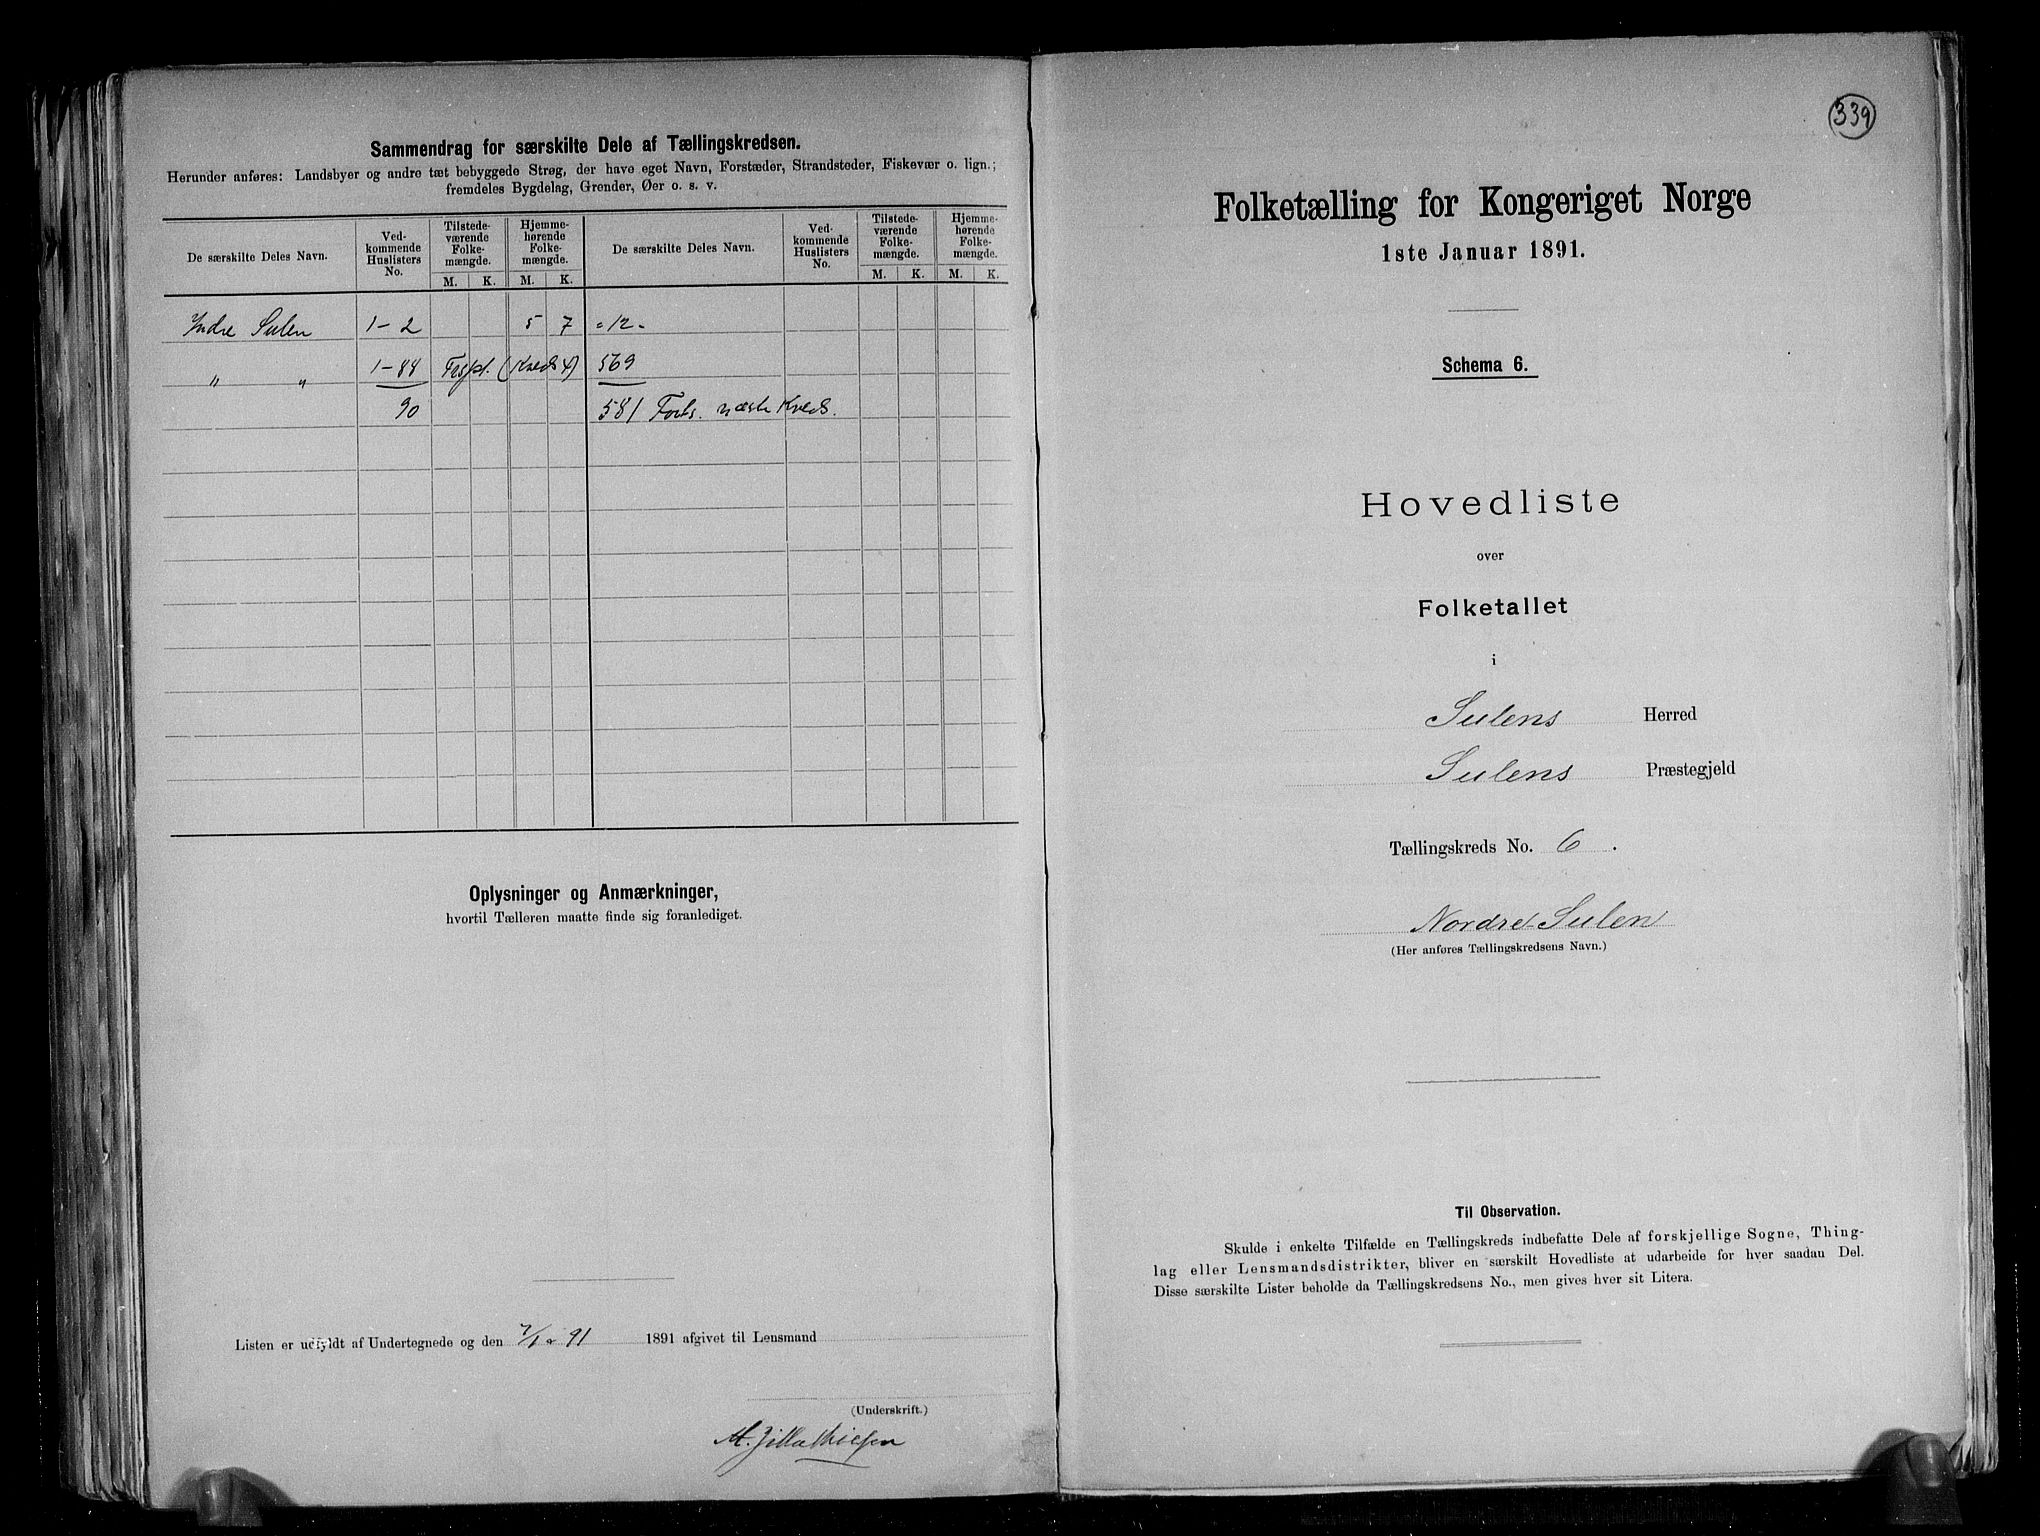 Sammendrag for særskilte Dele af Tællingskredsen.
Herunder anføres: Landsbyer og andre tæt bebyggede Strøg, der have eget Navn, Forstæder, Strandsteder, Fiskevær o. lign.;
fremdeles Bygdelag, Grender, Øer o. s. v.
De særskilte Deles Navn. Ved-kommende Huslisters No. Tilstede-værende Folke-mængde. Hjemme-hørende Folke-mængde. De særskilte Deles Navn. Ved-kommende Huslisters No. Tilstede-værende Folke-mængde. Hjemme-hørende Folke-mængde.
M. K. M. K. M. K. M. K.
Indre Sulen 1-2 5 7 = 12 -
" " 1-88 (Kreds 569
90 581 Forts. næste Kreds.
Oplysninger og Anmærkninger,
hvortil Tælleren maatte finde sig foranlediget.
Listen er udfyldt af Undertegnede og den 7/1 - 91 1891 afgivet til Lensmand
(Underskrift.)
339
Folketælling for Kongeriget Norge
1ste Januar 1891.
Schema 6.
Hovedliste
over
Folketallet
i
Sulens Herred
Sulens Præstegjeld
Tællingskreds No. 6.
Nordre-Sulen
(Her anføres Tællingskredsens Navn.)
Til Observation.
Skulde i enkelte Tilfælde en Tællingskreds indbefatte Dele af forskjellige Sogne, Thing-
lag eller Lensmandsdistrikter, bliver en særskilt Hovedliste at udarbeide for hver saadan Del.
Disse særskilte Lister beholde da Tællingskredsens No., men gives hver sit Litera.